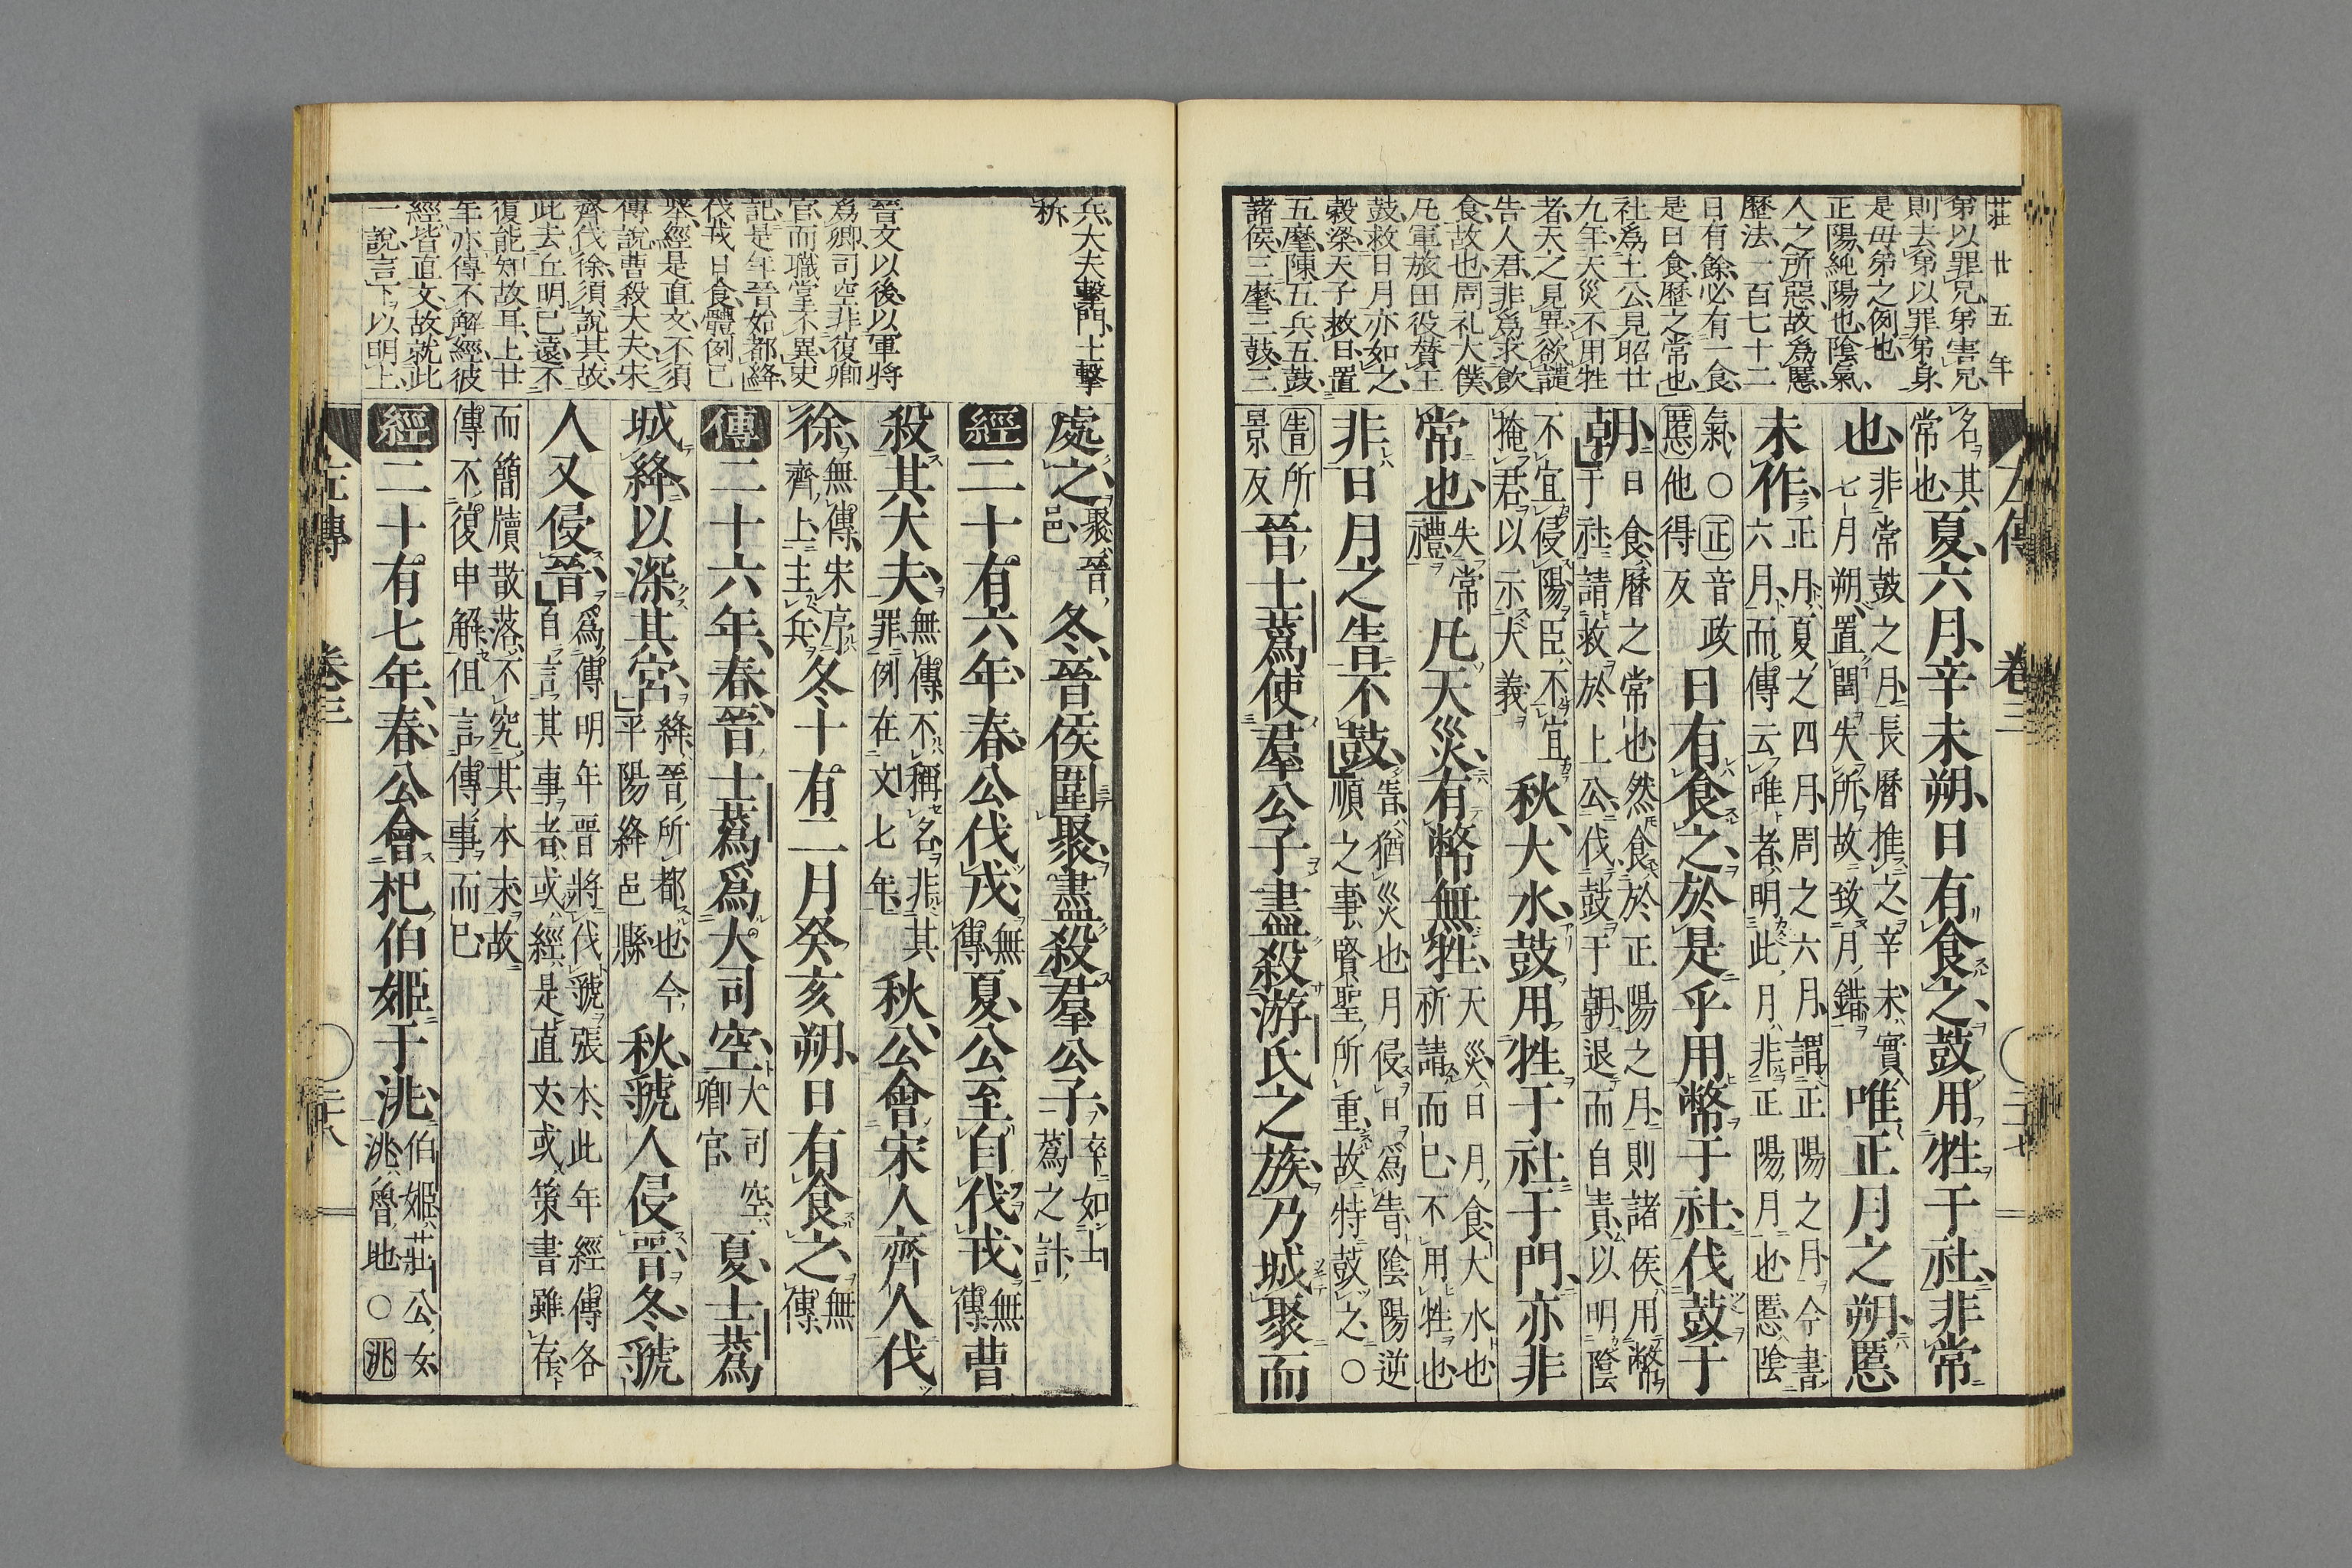 莊廿五年
弟以罪兄弟害兄
則去弟以罪弟身
是毋弟之例也
正陽純陽也陰氣
人之所惡故爲慝
歷法一百七十二
日有餘必有一食
是日食歷之常也
社爲上公見昭廿
九年天災不用牲
者天之見異欲譴
告人君非爲求飲
食故也周礼大僕
凡軍旅田役賛王
鼓救日月亦如之
穀梁天子救日置
五麾陳五兵五鼓
諸侯三麾三鼓三
左傳 卷三 二十七
名其常也夏六月辛未朔日有食之鼓用牲于社非常
也非常鼓之月長曆推之辛未實七月朔置閏失所故致月錯唯正月之朔慝
未作正月夏之四月周之六月謂正陽之月今書六月而傳云唯者明此月非正陽月也慝陰
氣○正音政慝他得反日有食之於是乎用幣于社伐鼓于
朝日食曆之常也然食於正陽之月則諸侯用幣于社請救於上公伐鼓于朝退而自責以明陰
不宜侵陽臣不宜掩君以示大義秋大水鼓用牲于社于門亦非
常也失常禮凡天災有幣無牲天災日月食大水也祈請而已不用牲也
非日月之眚不鼓眚猶災也月侵日爲眚陰陽逆順之事賢聖所重故特鼓之○
眚所景反晉士蒍使羣公子盡殺游氏之族乃城聚而
兵大夫擊門士擊
柝
晉文以後以軍將
爲卿司空非復卿
官而職掌不異史
記是年晉始都絳
伐戎日食體例已
舉經是直文不須
傳說曹殺大夫宋
齊伐徐須說其故
此去丘明已遠不
復能知故耳上廿
年亦傳不解經彼
經皆直文故就此
一說言下以明上
處之聚晉邑冬晉侯圍聚盡殺羣公子卒如士蒍之計
經二十有六年春公伐戎無傳夏公至自伐戎無傳曹
殺其大夫無傳不稱名非其罪例在文七年秋公會宋人齊人伐
徐無傳宋序齊上主兵冬十有二月癸亥朔日有食之無傳
傳二十六年春晉士蒍爲大司空大司空卿官夏士蒍
城絳以深其宮絳晉所都也今平陽絳邑縣秋虢人侵晉冬虢
人又侵晉爲傳明年晉將伐虢張本此年經傳各自言其事者或經是直文或策書雖存
而簡牘散落不究其本末故傳不復申解但言傳事而已
經二十有七年春公會杞伯姬于洮伯姬莊公女洮魯地○洮
左傳 卷三 二十八